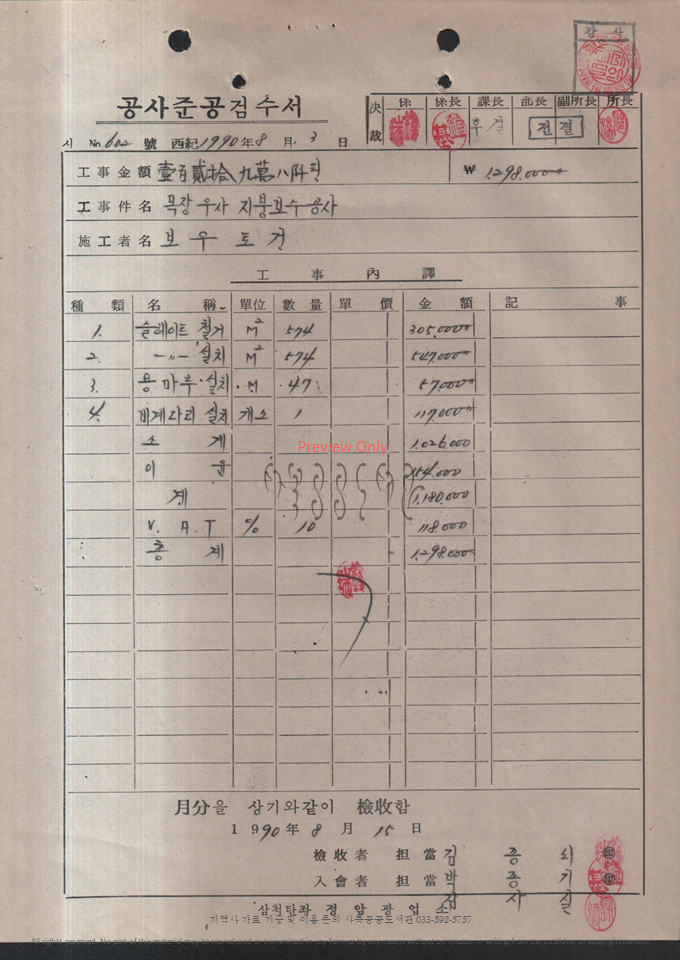 감사
공사준공검수서
決裁 係 係長 課長 部長 副所長 所長
후결 전결
No 602 號 西紀 1990年 8月 3日
工事金額 壹百貳拾九萬八阡원 ₩ 1,298,000
工事件名 목장 우사 지붕보수공사
施工者名 보우토건
工事內譯
種類 名稱 單位 數量 單價 金額 記事
1. 슬레이트 철거 M² 574 305,000
2. -〃- 설치 M² 574 547,000
3. 용마루 설치 M 47 57,000
4. 비계다리 설치 개소 1 117,000
소계 1,026,000
Preview Only
이윤 154,000
계 1,180,000
V.A.T % 10 118,000
총계 1,298,000
月分을 상기와같이 檢收함
1990年 8月 15日
檢收者 担當 김종 ㊞
入會者 担當 박종기 ㊞
감사실
삼척탄좌 정암광업소
지역사 자료 기증 및 이용 문의 사북공공도서관 033-592-5757
All rights reserved. No part of this material may be